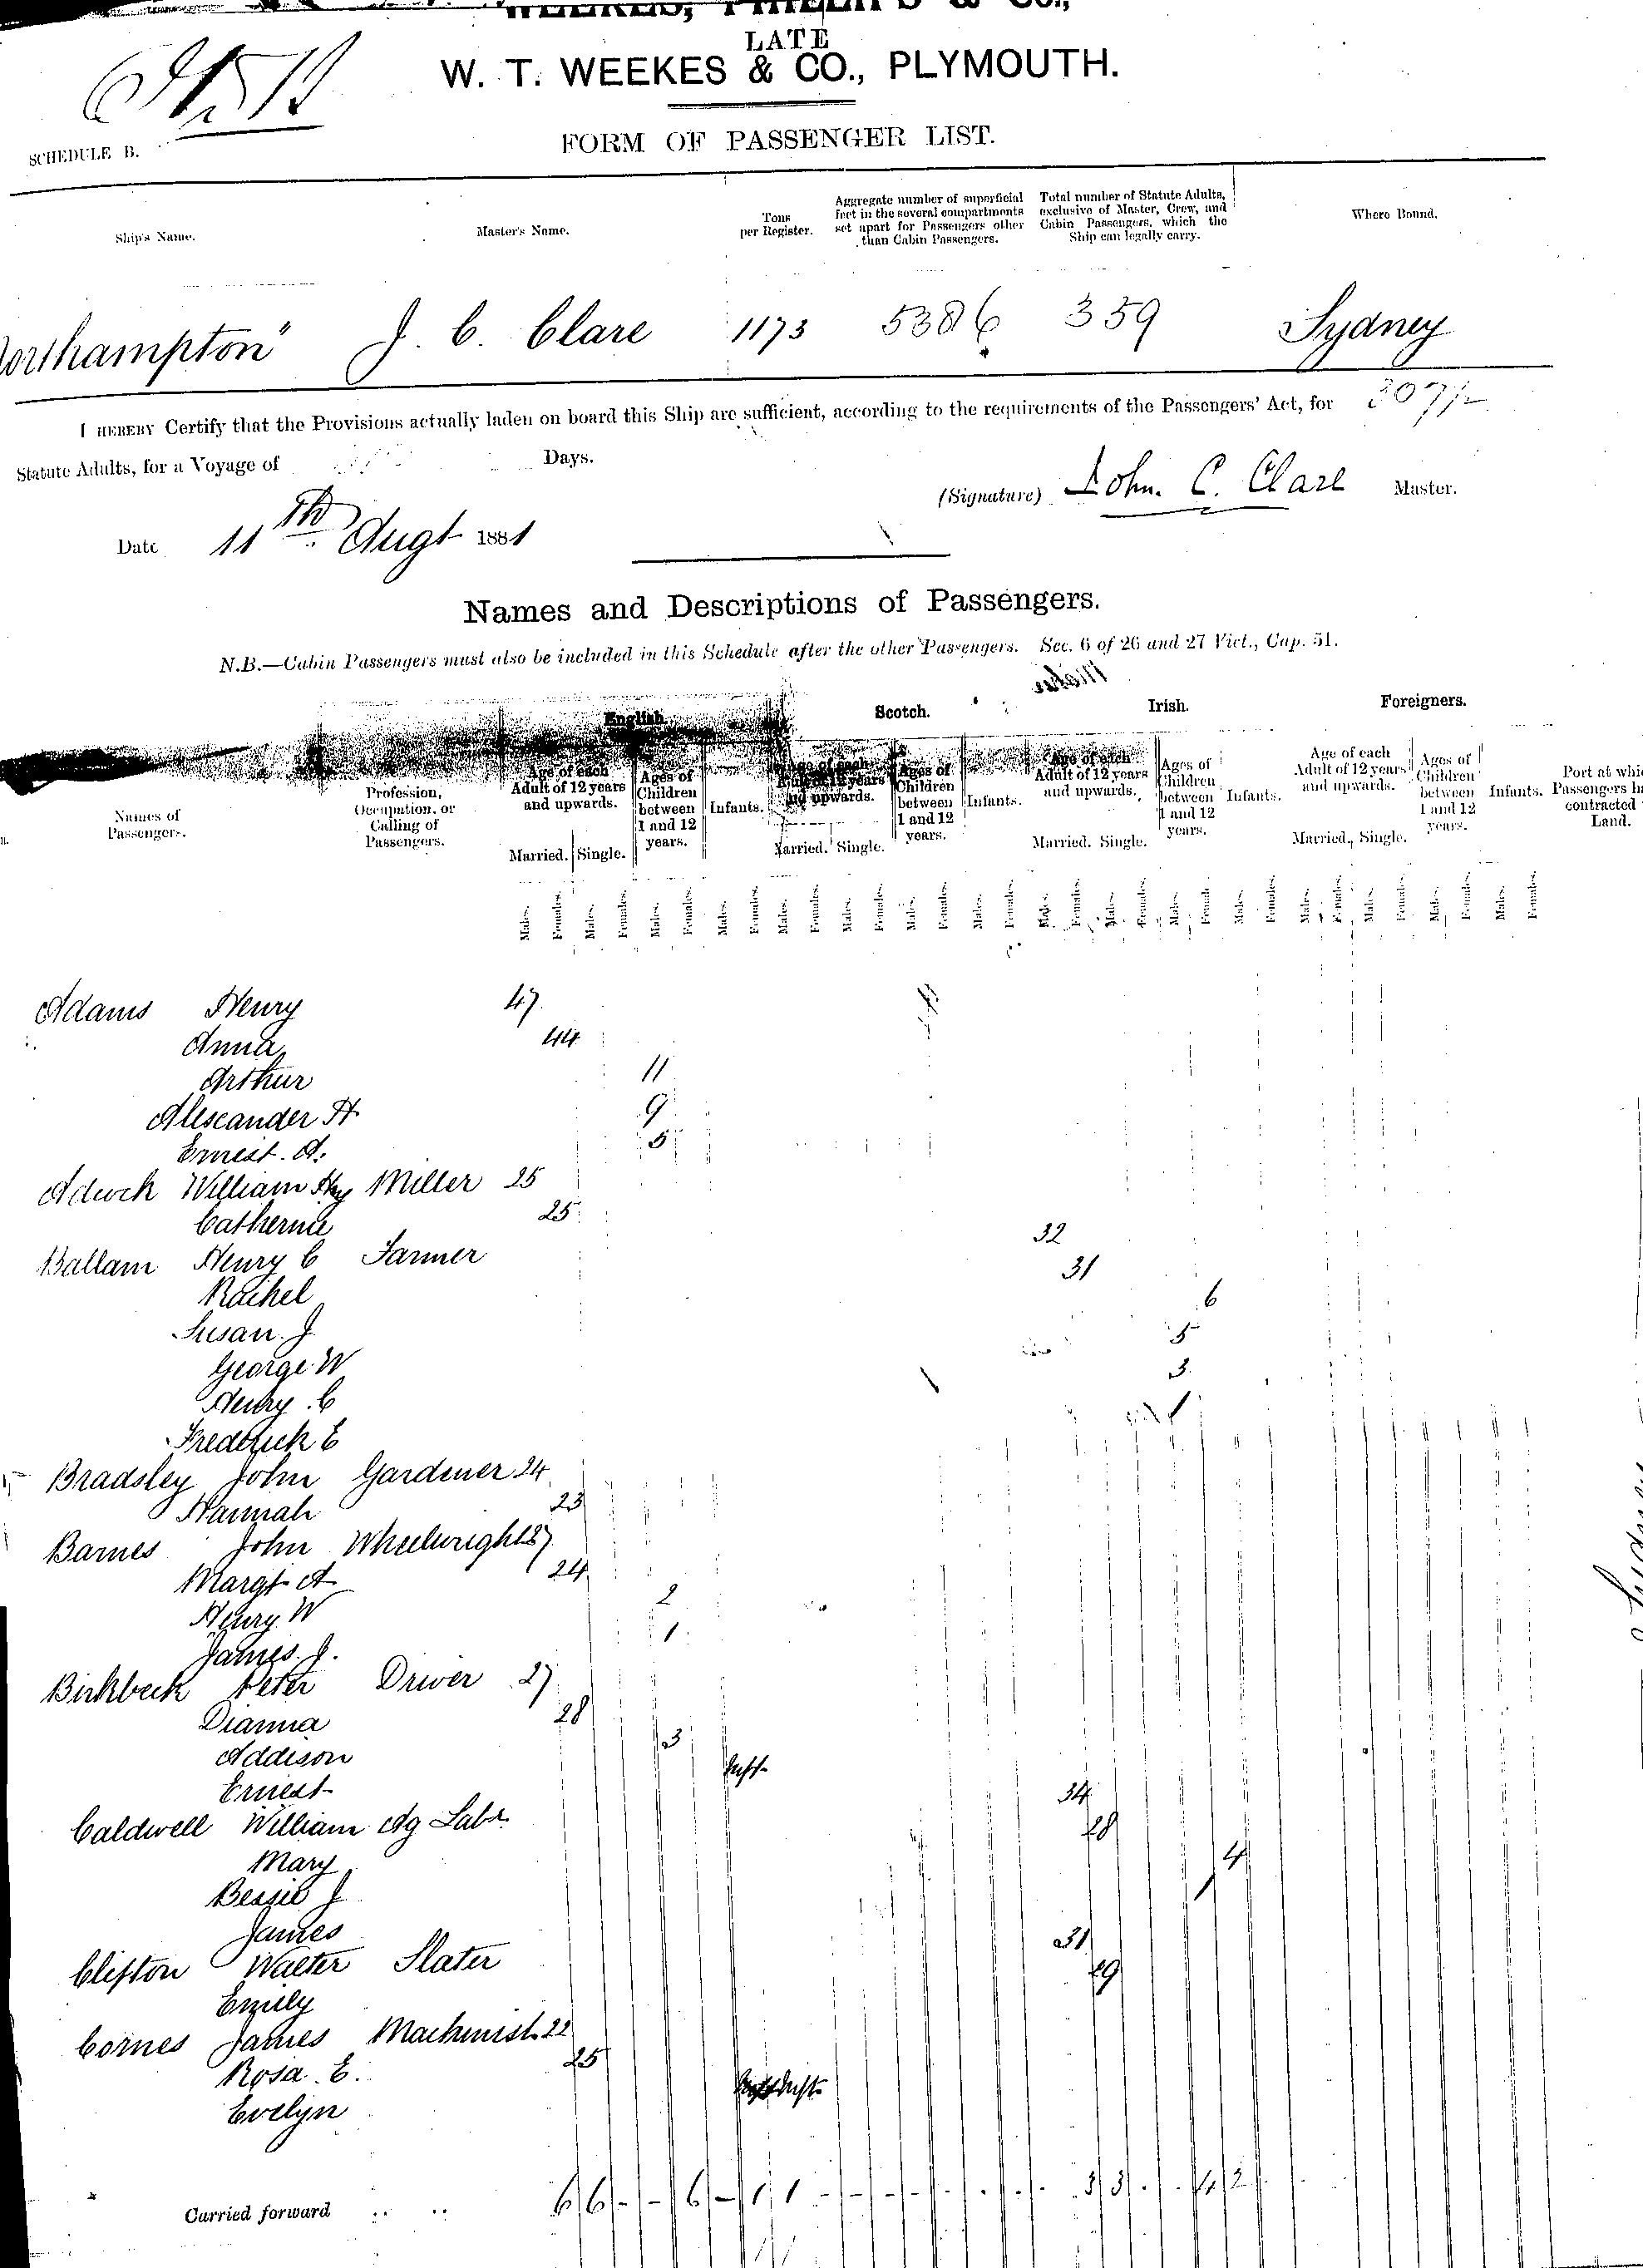 WEEKES, PHILLIPS & CO.,
LATE
W. T. WEEKES & CO., PLYMOUTH.
FORM OF PASSENGER LIST.
SCHEDULE B.
Ship's Name. Master's Name. Tons per Register. Aggregate number of superficial feet in the several compartments set apart for Passengers other than Cabin Passengers. Total number of Statute Adults, exclusive of Master, Crew, and Cabin Passengers, which the Ship can legally carry. Where Bound.
orthampton" J. C. Clare 1173 5386 359 Sydney
I HEREBY Certify that the Provisions actually laden on board this Ship are sufficient, according to the requirements of the Passengers' Act, for 307½
Statute Adults, for a Voyage of Days.
(Signature) John. C. Clare Master.
Date 11th Augt 1881
Names and Descriptions of Passengers.
N.B.—Cabin Passengers must also be included in this Schedule after the other Passengers. Sec. 6 of 26 and 27 Vict., Cap. 51.
English. Scotch. Irish. Foreigners.
Names of Passengers. Profession, Occupation, or Calling of Passengers. Age of each Adult of 12 years and upwards. Ages of Children between 1 and 12 years. Infants. Age of each Adult of 12 years and upwards. Ages of Children between 1 and 12 years. Infants. Age of each Adult of 12 years and upwards. Ages of Children between 1 and 12 years. Infants. Age of each Adult of 12 years and upwards. Ages of Children between 1 and 12 years. Infants. Port at whi Passengers h contracted Land.
Married. Single. Married. Single. Married. Single. Married. Single.
Males. Females. Males. Females. Males. Females. Males. Females. Males. Females. Males. Females. Males. Females. Males. Females. Males. Females. Males. Females. Males. Females. Males. Females. Males. Females. Males. Females. Males. Females. Males. Females.
Adams Henry 47
Anna 44
Arthur 11
Alexander H 9
Ernest. A. 5
Adwck William Hy Miller 25
Catherine 25
Ballam Henry C Farmer 32
Rachel 31
Susan. J. 6
George W 5
Henry. C 3
Frederick E 1
Bradsley John Gardener 24
Hannah 23
Barnes John Wheelwright 27
Margt A 24
Henry W 2
James. J. 1
Birkbeck Peter Driver 27
Dianna 28
Addison 3
Ernest Inft
Caldwell William Ag Labr 34
Mary 28
Bessie J 4
James 1
Clifton Walter Slater 31
Emily 29
Cornes James Machinist 22
Rosa. E. 25
Evelyn Inft
Carried forward .. .. 6 6 - - 6 - 1 1 - - - - - - - - 3 3 - - 4 2